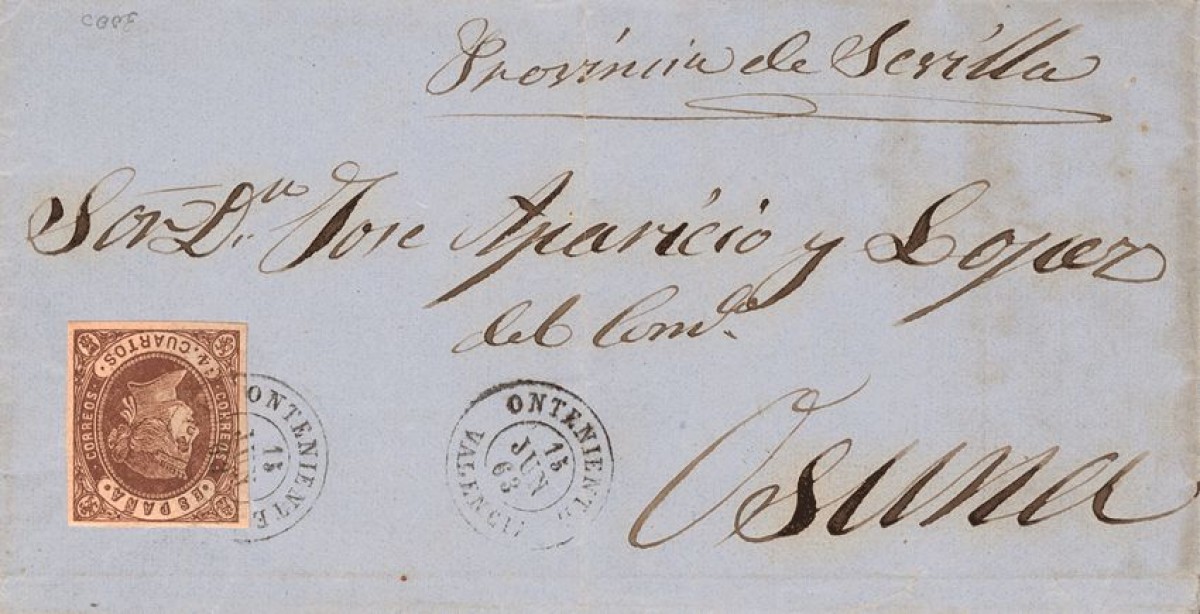 Provincia de Sevilla
Sor Dn. Jose Aparicio y Lopez
del Comº.
Osuna
4, CUARTOS.
CORREOS
CORREOS
ESPAÑA
ONTENIENTE
15
JUN
ONTENIENTE
15
JUN
63
VALENCIA